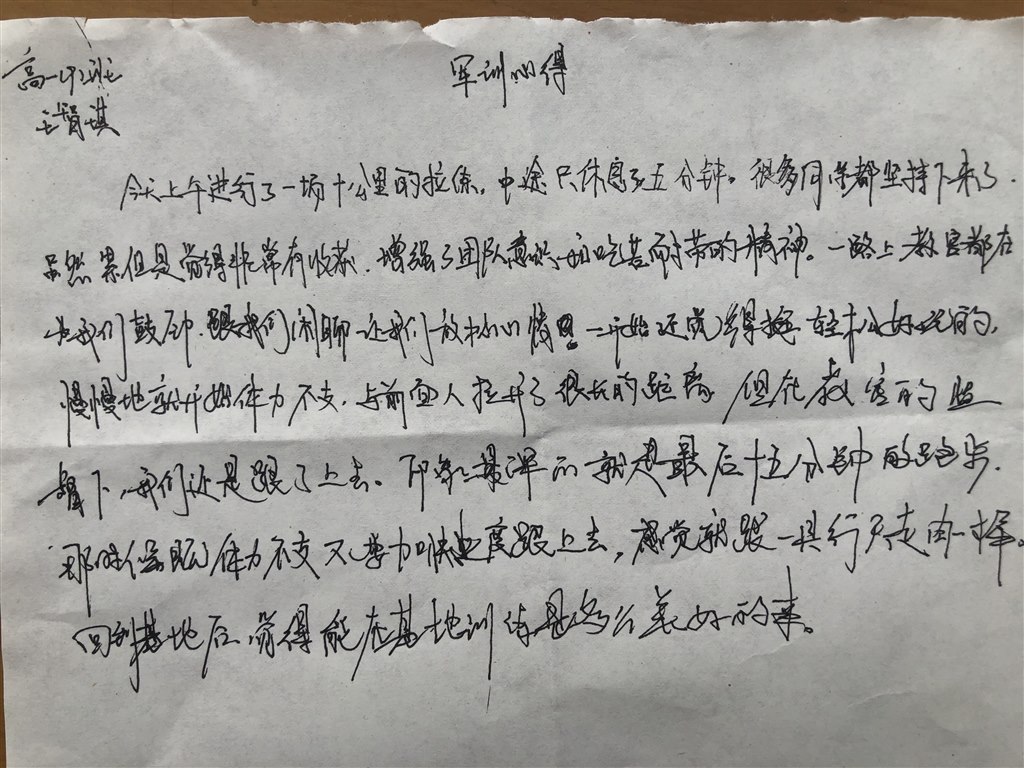 军训心得
高一(2)班
王
今天上午进行了一场十公里的拉练。中途只休息了五分钟。很多同学都坚持下来了.
虽然累但是觉得非常有收获.增强了团队意识和吃苦耐劳的精神。一路上教官都在
为我们鼓励.跟我们闲聊让我们放松心情。一开始还觉得挺轻松好玩的,
慢慢地就开始体力不支.与前面人拉开了很长的距离 但在教官的监
督下,我们还是跟了上去。印象最深的就是最后十五分钟的跑步.
那时候既体力不支又要加快速度跟上去,感觉就跟一具行尸走肉一样。
回到基地后觉得能在基地训练是多么美好的事。